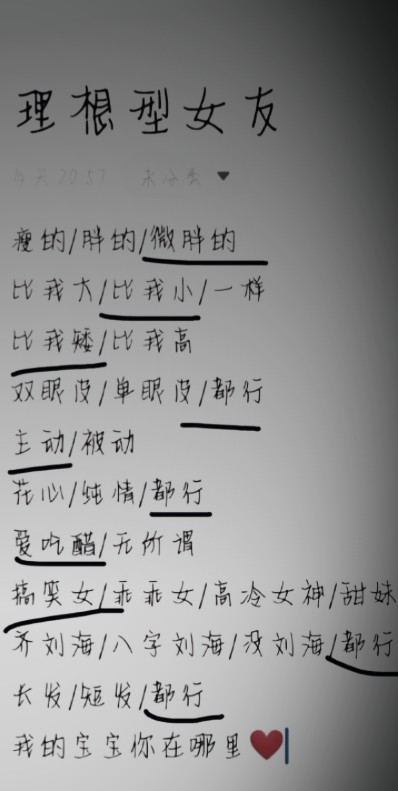 理根型女友
今天 20:57 未分类
瘦的/胖的/微胖的
比我大/比我小/一样
比我矮/比我高
双眼皮/单眼皮/都行
主动/被动
花心/纯情/都行
爱吃醋/无所谓
搞笑女/乖乖女/高冷女神/甜妹
齐刘海/八字刘海/没刘海/都行
长发/短发/都行
我的宝宝你在哪里❤️